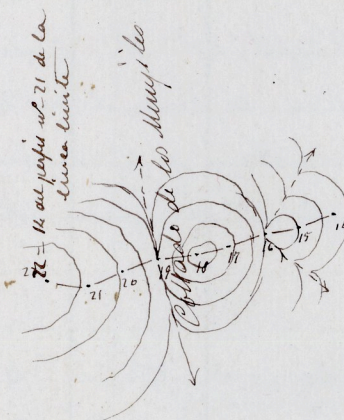 22 = 14 del perfil nº 21 de la
linea limite
Collado de los
22
21
20
19
18
17
16
15
14